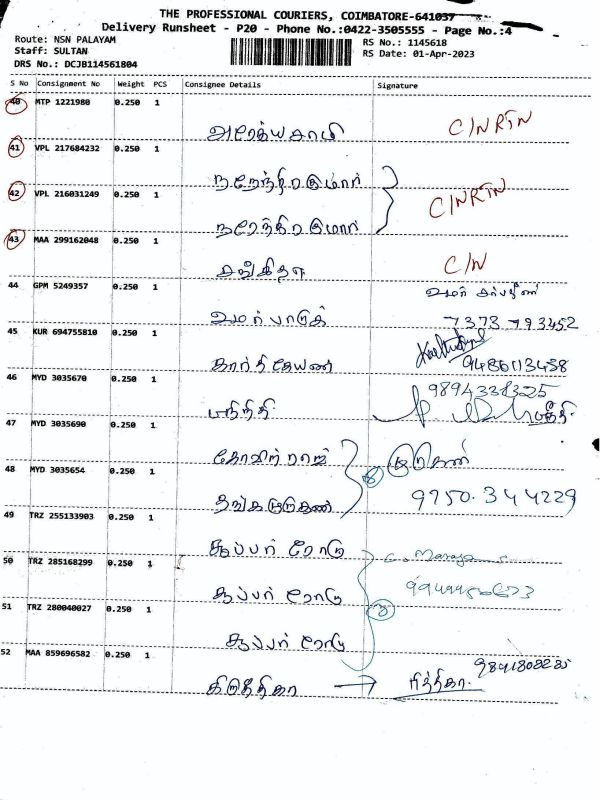 THE PROFESSIONAL COURIERS, COIMBATORE-641037
Delivery Runsheet - P20 - Phone No.:0422-3505555 - Page No.:4
Route: NSN PALAYAM
RS No.: 1145618
Staff: SULTAN
RS Date: 01-Apr-2023
DRS No.: DCJB114561804
S No Consignment No Weight PCS Consignee Details Signature
40 MTP 1221980 0.250 1
C/NRTN
41 VPL 217684232 0.250 1
42 VPL 216031249 0.250 1
C/NRTN
நரேந்திரகுமார்
43 MAA 299162048 0.250 1
C/N
சங்கீதா
44 GPM 5249357 0.250 1
உமர் பாரூக் 7373 793452
45 KUR 694755810 0.250 1
கார்த்திகேயன் 9486113458
46 MYD 3035670 0.250 1
9894338325
47 MYD 3035690 0.250 1
கோவிந்ராஜ்
48 MYD 3035654 0.250 1
தங்கமுருகன் 9750.344229
49 TRZ 255133903 0.250 1
சூப்பர் ரோடு
50 TRZ 285168299 0.250 1
சூப்பர் ரோடு
51 TRZ 280040027 0.250 1
சூப்பர் ரோடு
52 MAA 859696582 0.250 1
கிருத்திகா →